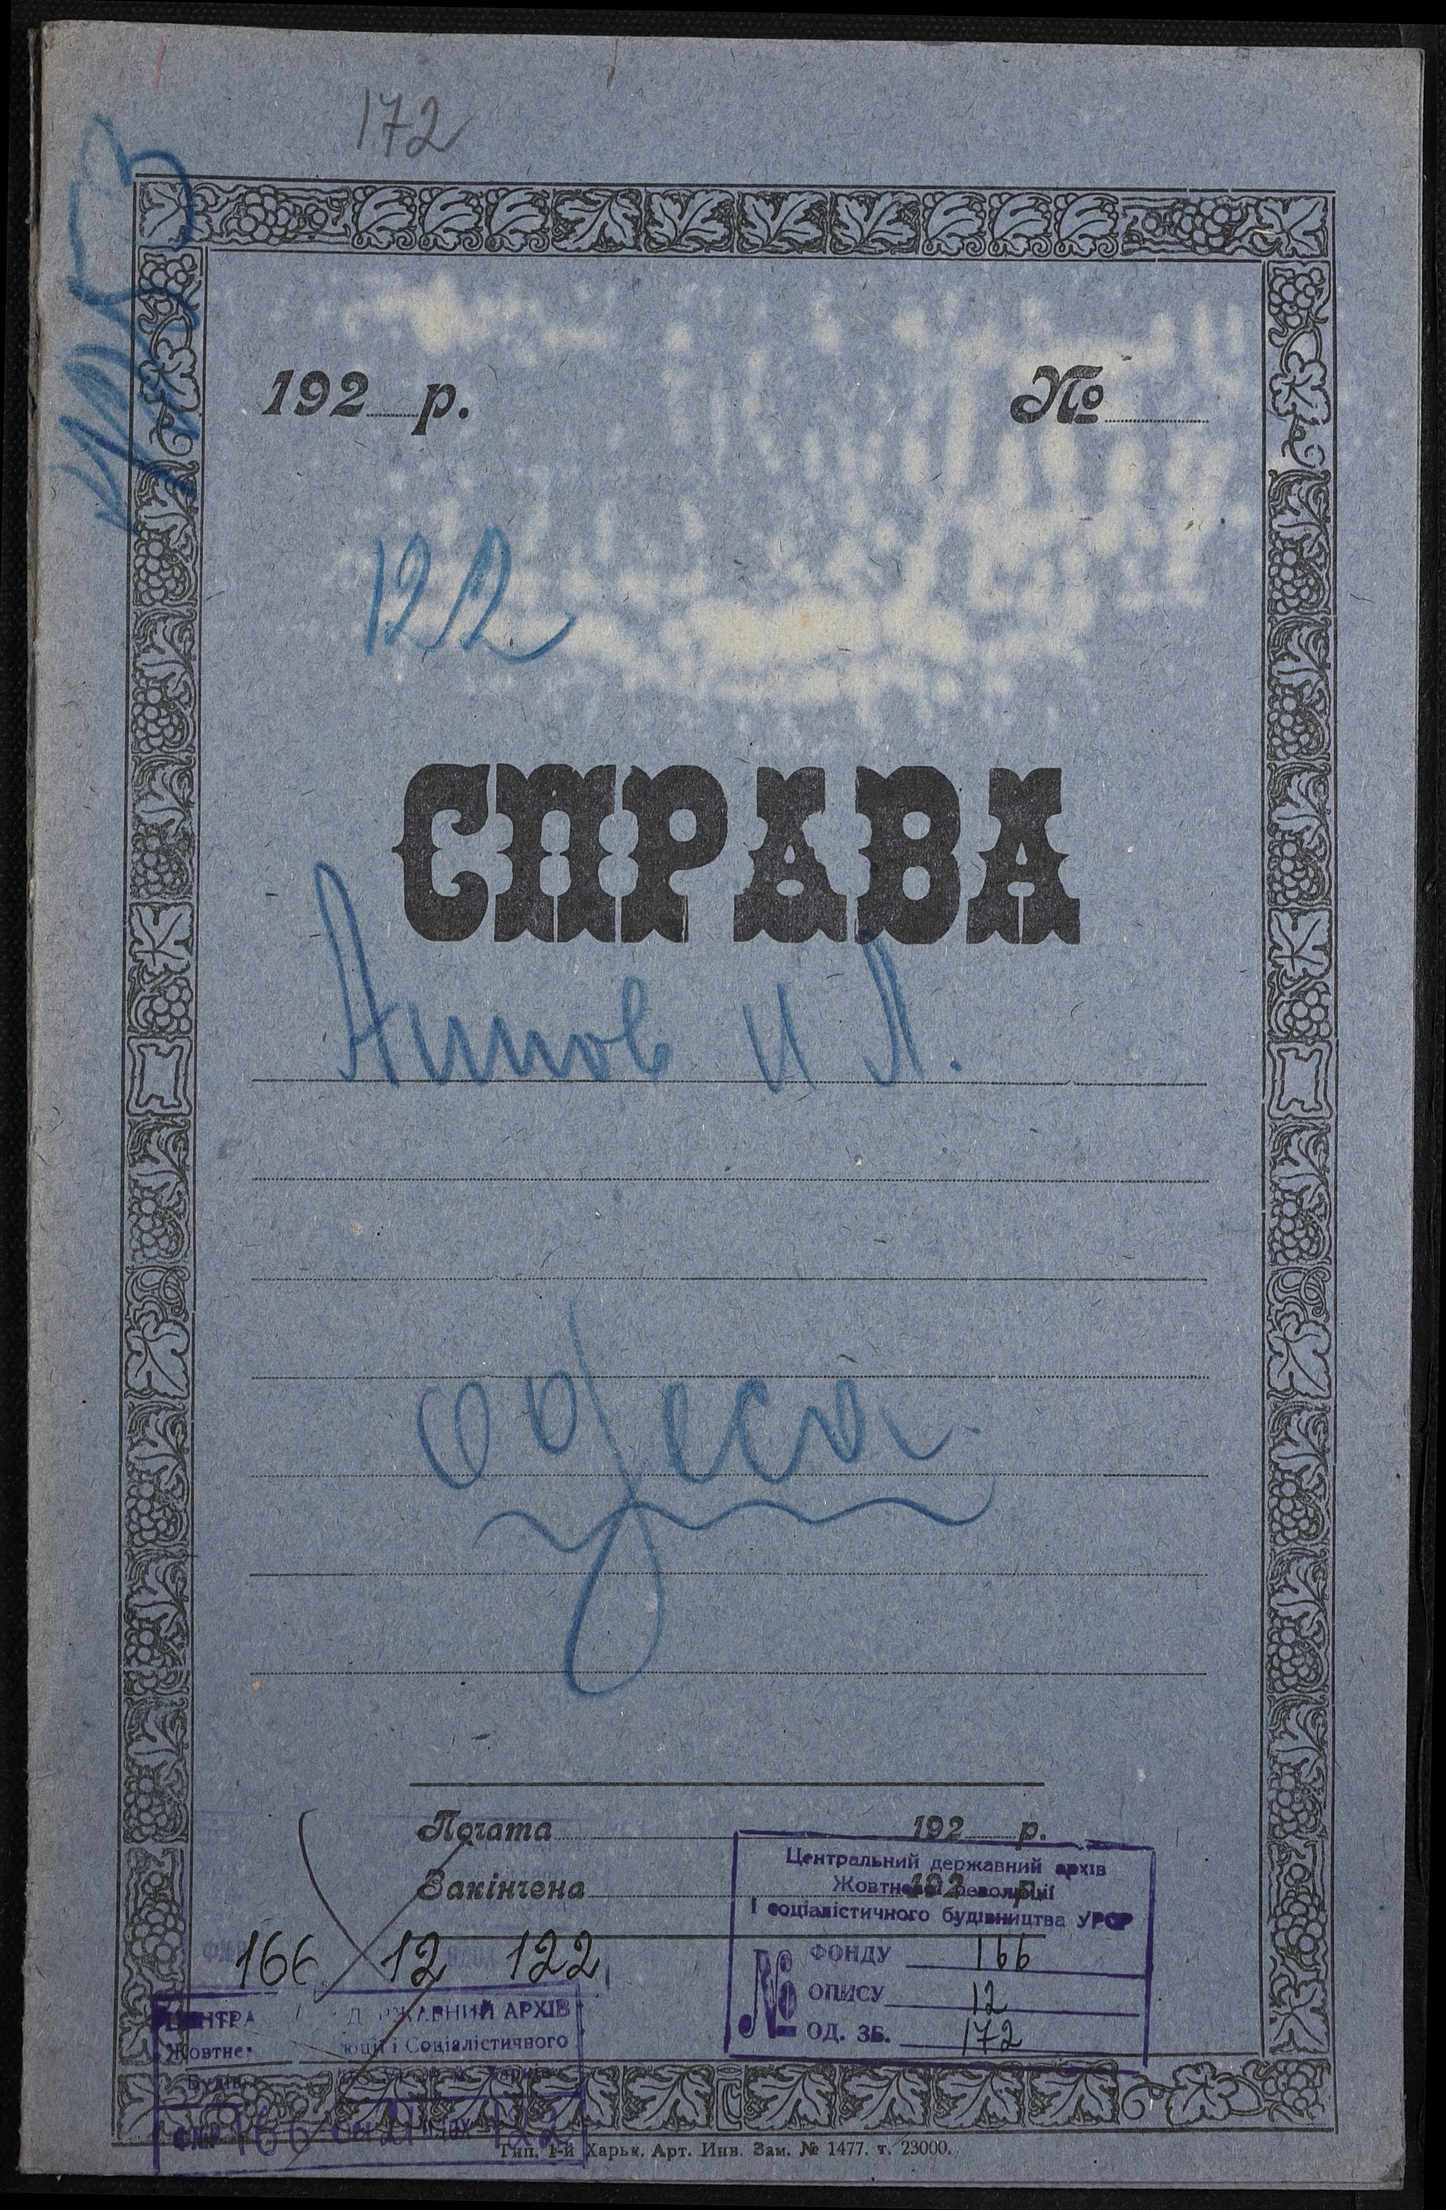 172
192 р. №
122
СПРАВА
Аппов И Л.
Одеса.
Почата 192 р.
Закінчена 192 р.
Центральний державний архів
Жовтневої революції
і соціалістичного будівництва УРСР
№ ФОНДУ 166
ОПИСУ 12
ОД. ЗБ. 172
166 12 122
АРХІВ
і Соціалістичного
166 122
Тип. 1-й Харьк. Арт. Инв. Зам. № 1477. т. 23000.